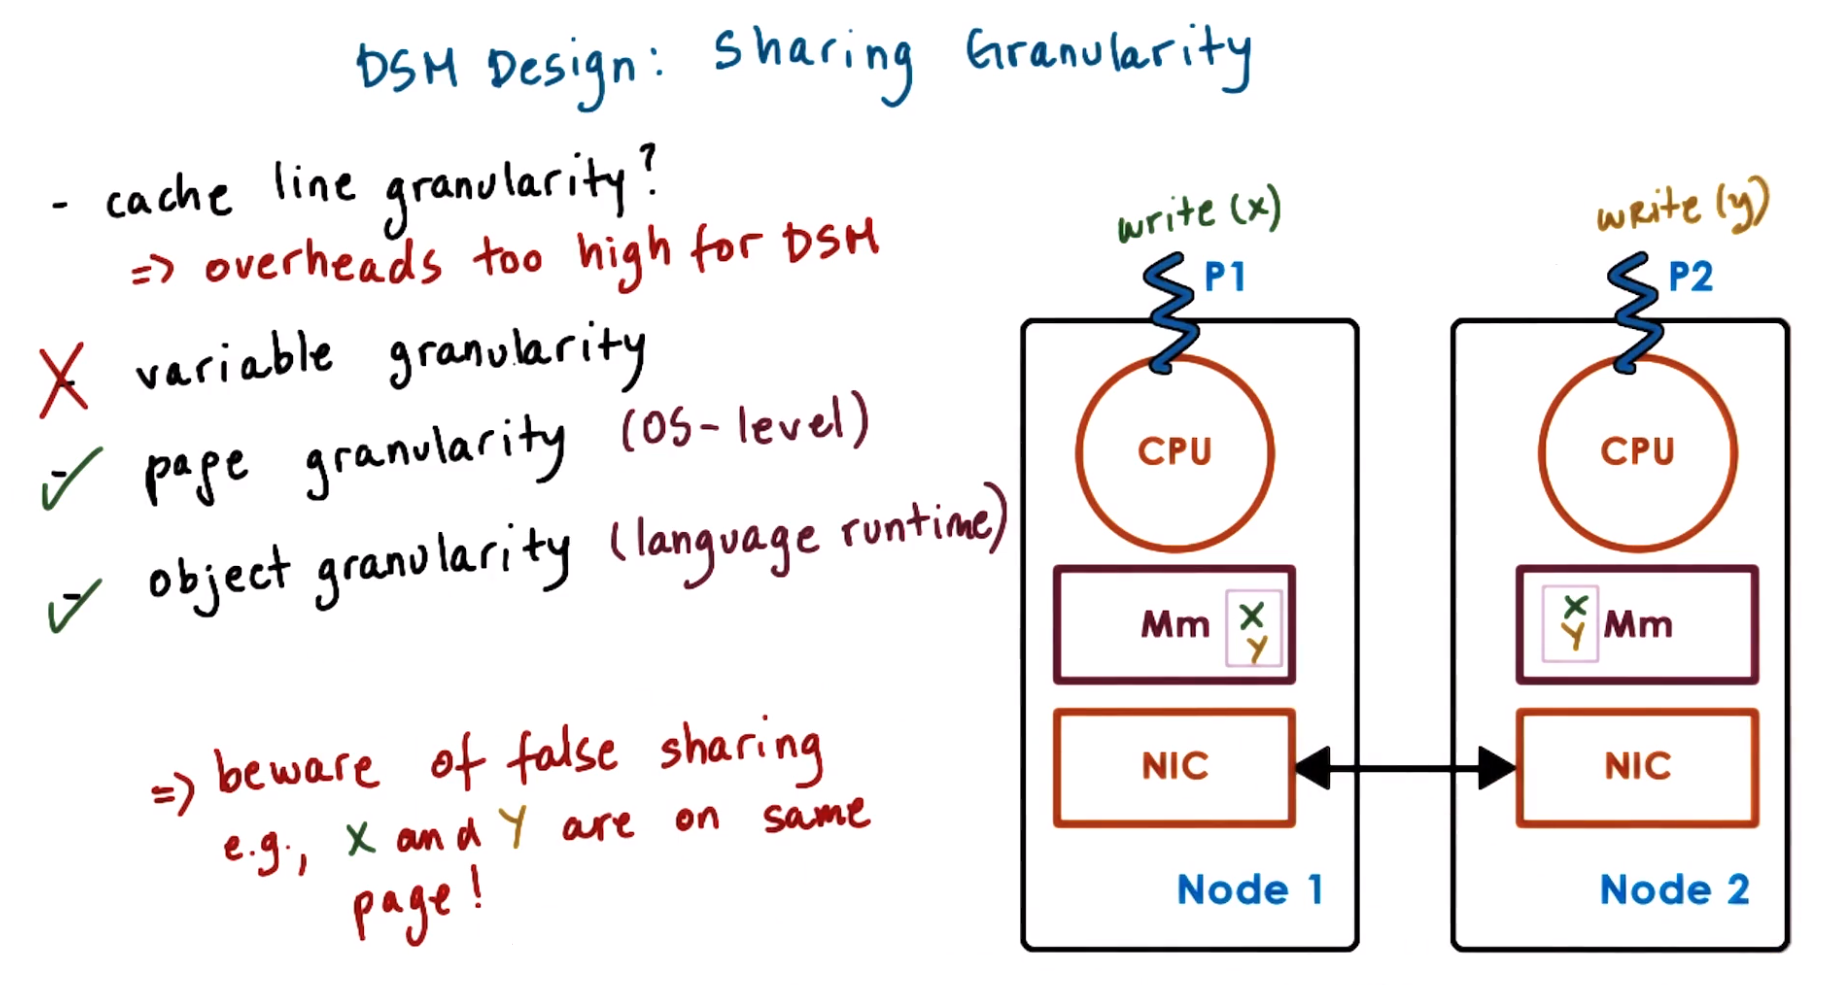 DSM Design: Sharing Granularity
- cache line granularity?
=> overheads too high for DSM
X - variable granularity
✓ - page granularity (OS-level)
✓ - object granularity (language runtime)
=> beware of false sharing
e.g., X and Y are on same
page!
write (x)
P1
CPU
Mm X
Y
NIC
Node 1
write (y)
P2
CPU
X Mm
Y
NIC
Node 2